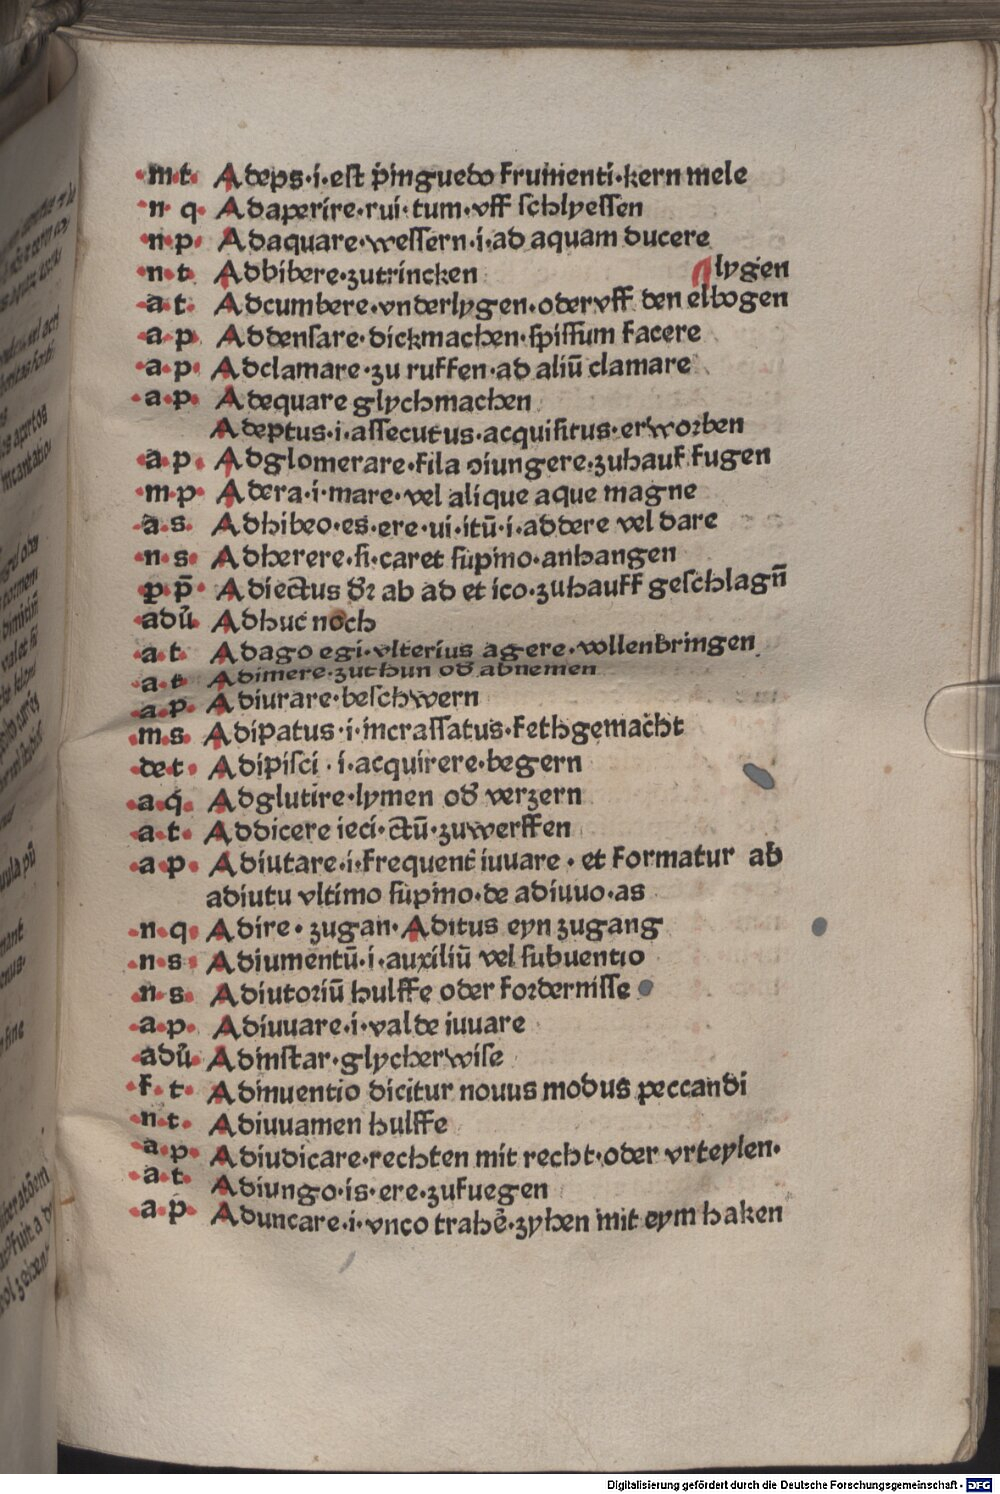 ·m·t· Adeps·i·est p̄inguedo frumenti·kern mele
·n· q· Adaperire·rui·tum·vff schlyessen
·n·p· Adaquare·wessern·i·ad aquam ducere
·n·t· Adbibere·zutrincken lygen
·a·t· Adcumbere·vnderlygen·oder vff den elbogen
·a·p· Addensare·dickmachen·spissum facere
·a·p· Adclamare·zu ruffen·ad aliū clamare
·a·p· Adequare glychmachen
Adeptus·i·assecutus·acquisitus·erworben
·a·p· Adglomerare·fila ɔiungere·zuhauf fugen
·m·p· Adera·i·mare·vel alique aque magne
·a·s· Adhibeo·es·ere·ui·itū·i·addere vel dare
·n·s· Adherere·si·caret supino·anhangen
·ꝑ p̄· Adiectus dr̄ ab ad et ico·zuhauff geschlagn̄
adū· Adhuc noch
·a·t· Adago egi·vlterius agere·vollenbringen
·a·t· Adimere·zuthun od̛ abnemen
·a·p· Adiurare·beschwern
·m·s· Adipatus·i·incrassatus·fethgemacht
de·t· Adipisci·i·acquirere·begern
·a·q· Adglutire·lymen od̛ verzern
·a·t· Addicere ieci·ctū·zuwerffen
·a·p· Adiutare·i·frequent̄ iuuare·et formatur ab
adiutu vltimo supino·de adiuuo·as
·n·q· Adire·zugan·Aditus eyn zugang
·n·s· Adiumentū·i·auxiliū vel subuentio
·n·s· Adiutoriū hulffe oder fordernisse
·a·p· Adiuuare·i·valde iuuare
adū· Adinstar·glycherwise
·f·t· Adinuentio dicitur nouus modus peccandi
·n·t· Adiuuamen hulffe
·a·p· Adiudicare·rechten mit recht·oder vrteylen·
·a·t· Adiungo·is·ere·zufuegen
·a·p· Aduncare·i·vnco trahē·zyhen mit eym haken
Digitalisierung gefördert durch die Deutsche Forschungsgemeinschaft - DFG